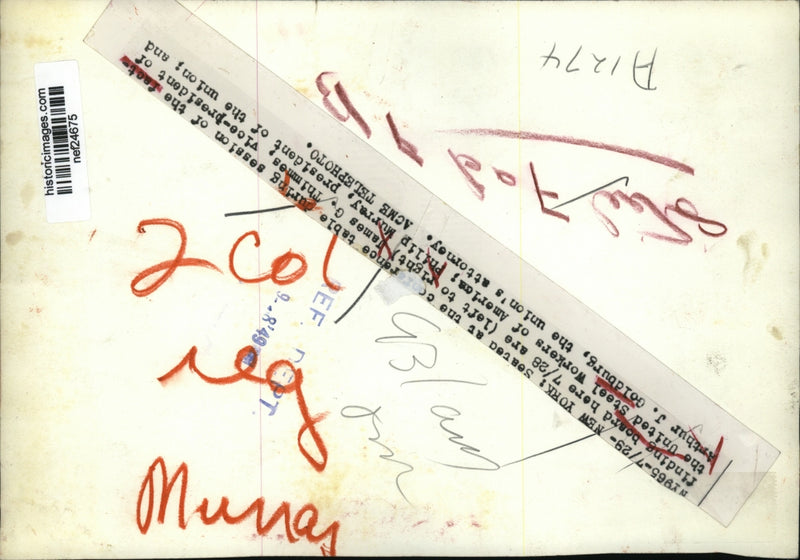 NY965-7/29- NEW YORK: Seated at the conference table during session of the fact-
finding board here 7/28 are (left to right) James G. Thimmes, vice-president of
the United Steel Workers of America; Philip Murray, president of the union; and
Arthur J. Goldburg, the union's attorney. ACME TELEPHOTO.
historicimages.com
nef24675
A1274
Steel
9 B
2 Col
reg
Murray
REF. DEPT.
GB/